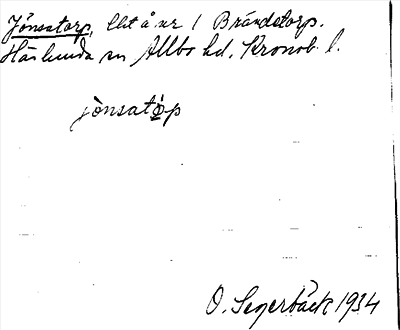 Jönsatorp, lht å nr 1 Brändetorp.
Härlunda sn Allbo hd. Kronob. l.
jònsatò̱p
O. Segerbäck 1934